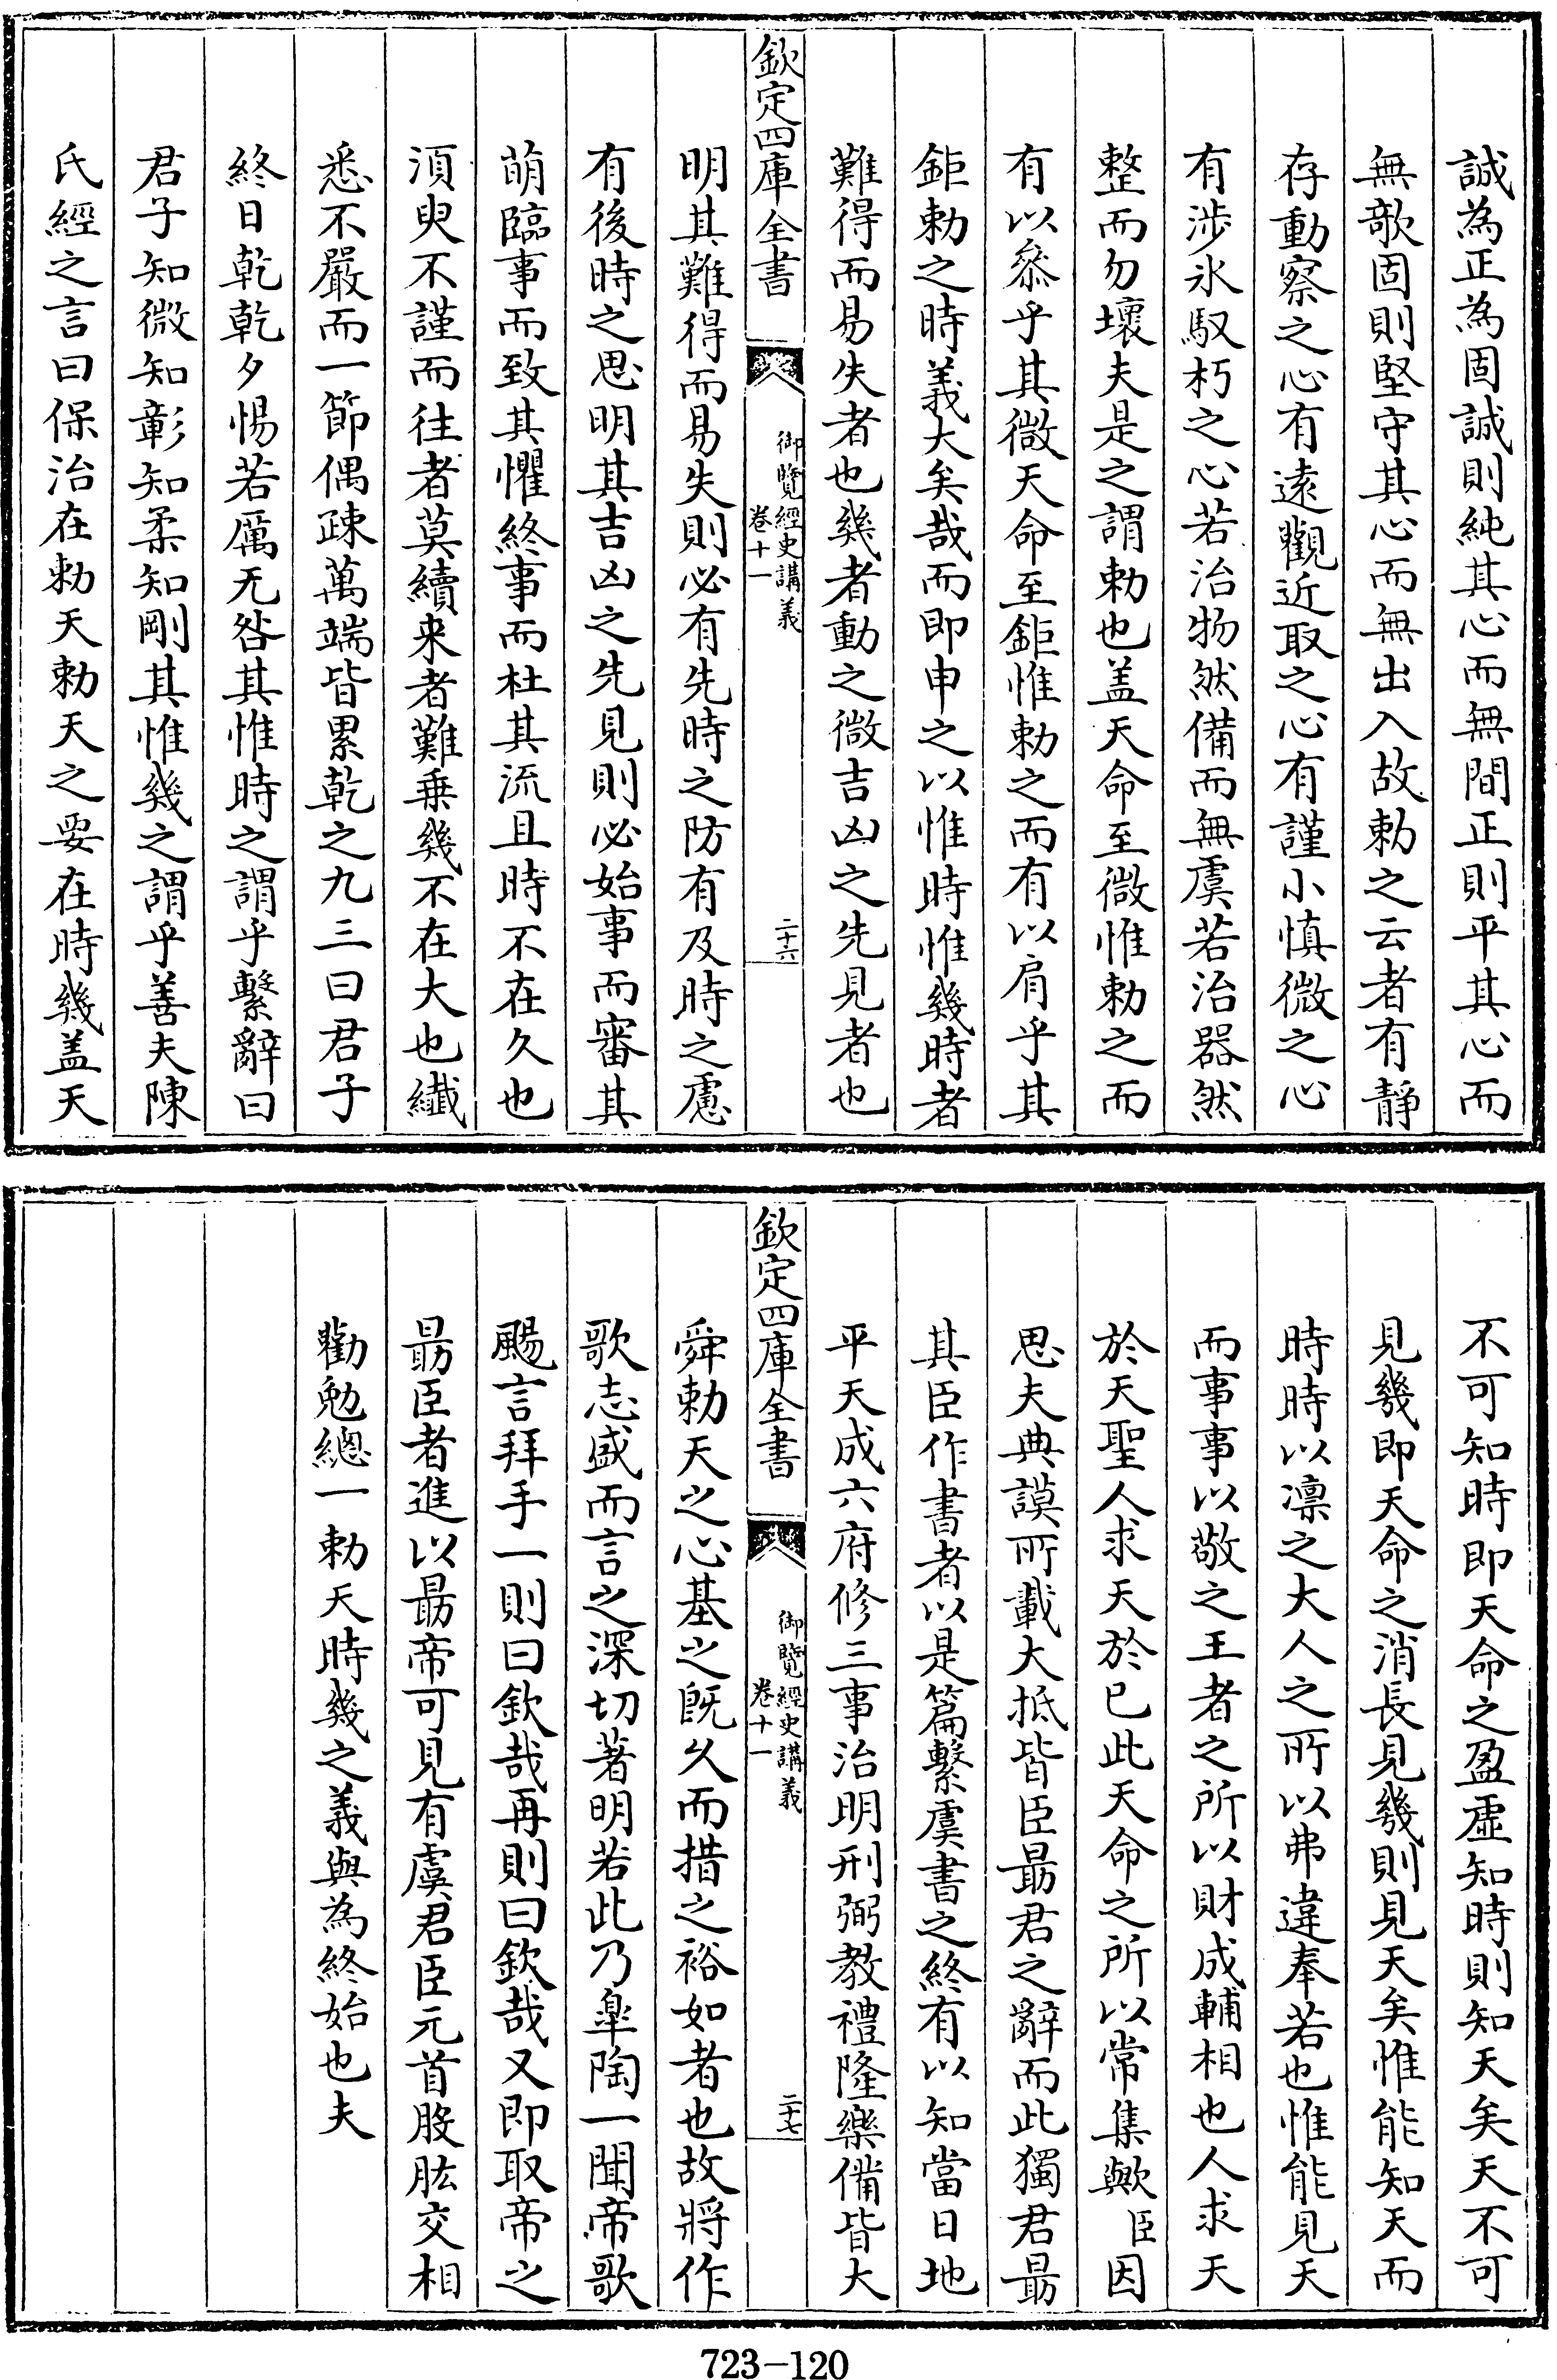 誠為正為固誠則純其心而無間正則平其心而
無欹固則堅守其心而無出入故勅之云者有靜
存動察之心有遠觀近取之心有謹小慎微之心
有涉氷馭朽之心若治物然備而無虞若治器然
整而勿壞夫是之謂勅也盖天命至微惟勅之而
有以叅乎其微天命至鉅惟勅之而有以肩乎其
鉅勅之時義大矣哉而即申之以惟時惟幾時者
難得而易失者也幾者動之微吉凶之先見者也
欽定四庫全書
御覽經史講義
卷十一
二十六
明其難得而易失則必有先時之防有及時之慮
有後時之思明其吉凶之先見則必始事而審其
萌臨事而致其懼終事而杜其流且時不在久也
湏臾不謹而往者莫續来者難乗幾不在大也纖
悉不嚴而一節偶疎萬端皆累乾之九三曰君子
終日乾乾夕惕若厲无咎其惟時之謂乎繫辭曰
君子知微知彰知柔知剛其惟幾之謂乎善夫陳
氏經之言曰保治在勅天勅天之要在時幾盖天
不可知時即天命之盈虛知時則知天矣天不可
見幾即天命之消長見幾則見天矣惟能知天而
時時以凛之大人之所以弗違奉若也惟能見天
而事事以敬之王者之所以財成輔相也人求天
於天聖人求天於己此天命之所以常集歟臣因
思夫典謨所載大抵皆臣朂君之辭而此獨君朂
其臣作書者以是篇繫虞書之終有以知當日地
平天成六府修三事治明刑弼教禮隆樂備皆大
欽定四庫全書
御覽經史講義
卷十一
二十七
舜勅天之心基之旣久而措之裕如者也故將作
歌志盛而言之深切著明若此乃臯陶一聞帝歌
颺言拜手一則曰欽哉再則曰欽哉又即取帝之
朂臣者進以朂帝可見有虞君臣元首股肱交相
勸勉總一勅天時幾之義與為終始也夫
723-120